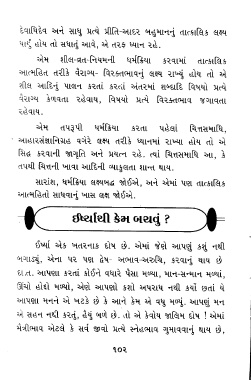 દેવાધિદેવ અને સાધુ પ્રત્યે પ્રીતિ-આદર બહુમાનનું તાત્કાલિક લક્ષ્ય
ધાર્યું હોય તો સધાતું આવે, એ તરફ ધ્યાન રહે.
એમ શીલ-વ્રત-નિયમની ધર્મક્રિયા કરવામાં તાત્કાલિક
આત્મહિત તરીકે વૈરાગ્ય- વિરક્તભાવનું લક્ષ્ય રાખ્યું હોય તો એ
શીલ આદિનું પાલન કરતાં કરતાં અંતરમાં શબ્દાદિ વિષયો પ્રત્યે
વૈરાગ્ય કેળવતા રહેવાય, વિષયો પ્રત્યે વિરક્તભાવ જગાવતા
રહેવાય.
એમ તપરૂપી ધર્મક્રિયા કરતા પહેલાં ચિત્તસમાધિ,
આહારસંજ્ઞાનિગ્રહ વગેરે લક્ષ્ય તરીકે ધ્યાનમાં રાખ્યા હોય તો એ
સિદ્ધ કરવાની જાગૃતિ અને પ્રયત્ન રહે. ત્યાં ચિત્તસમાધિ આ, કે
તપથી ચિત્તની ખાવા આદિની વ્યાકુલતા શાન્ત થાય.
સારાંશ, ધર્મક્રિયા લક્ષ્યબદ્ધ જોઈએ, અને એમાં પણ તાત્કાલિક
આત્મહિતો સાધવાનું ખાસ લક્ષ જોઈએ.
ઈર્ષ્યાથી કેમ બચતું ?
ઈર્ષ્યા એક ખતરનાક દોષ છે. એમાં જેણે આપણું કશું નથી
બગાડ્યું, એના પર પણ દ્વેષ- અભાવ-અરુચિ, કરવાનું થાય છે
દા.ત. આપણા કરતાં કોઈને વધારે પૈસા મળ્યા, માન-સન્માન મળ્યાં,
ઊંચો હોદ્દો મળ્યો, એણે આપણો કશો અપરાધ નથી કર્યો છતાં યે
આપણા મનને એ ખટકે છે કે આને કેમ એ વધુ મળ્યું. આપણું મન
એ સહન નથી કરતું, હૈયું બળે છે. તો એ કેવોય જાલિમ દોષ ! એમાં
મૈત્રીભાવ એટલે કે સર્વ જીવો પ્રત્યે સ્નેહભાવ ગુમાવવાનું થાય છે,
૧૦૨